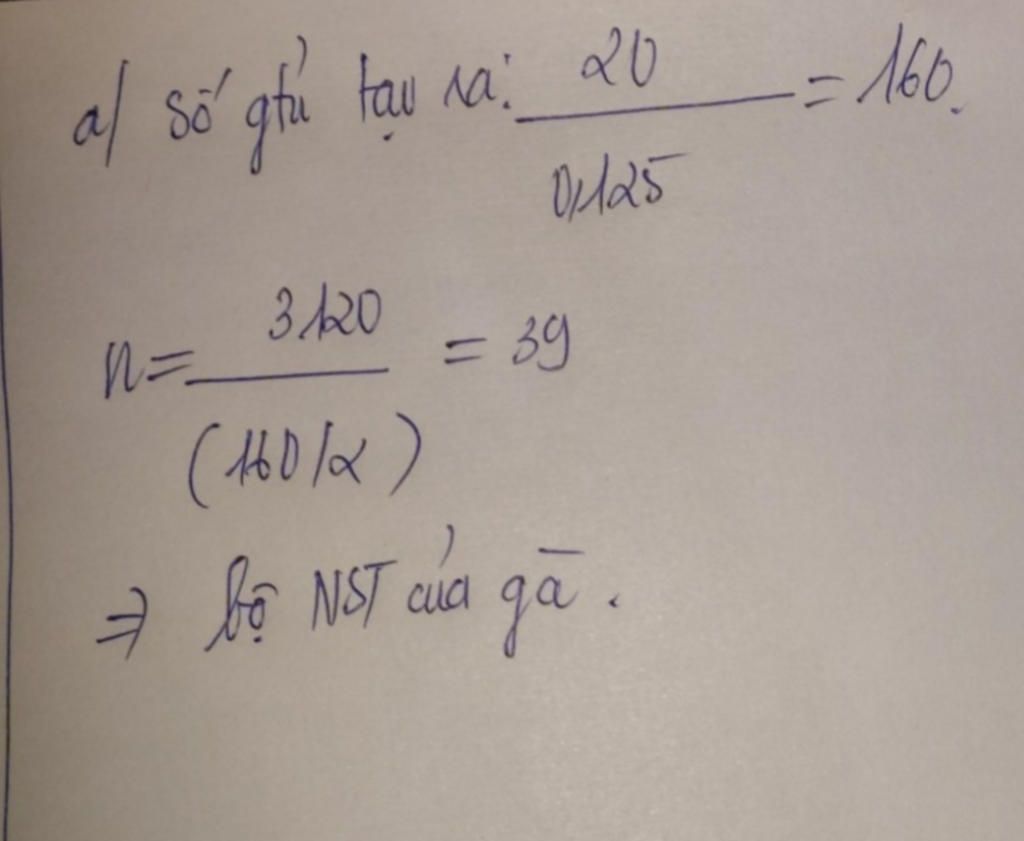 a) Số gtử tạo ra: 20 / 0,125 = 160.
n = 3120 / (160/2) = 39
⇒ bộ NST của gà.